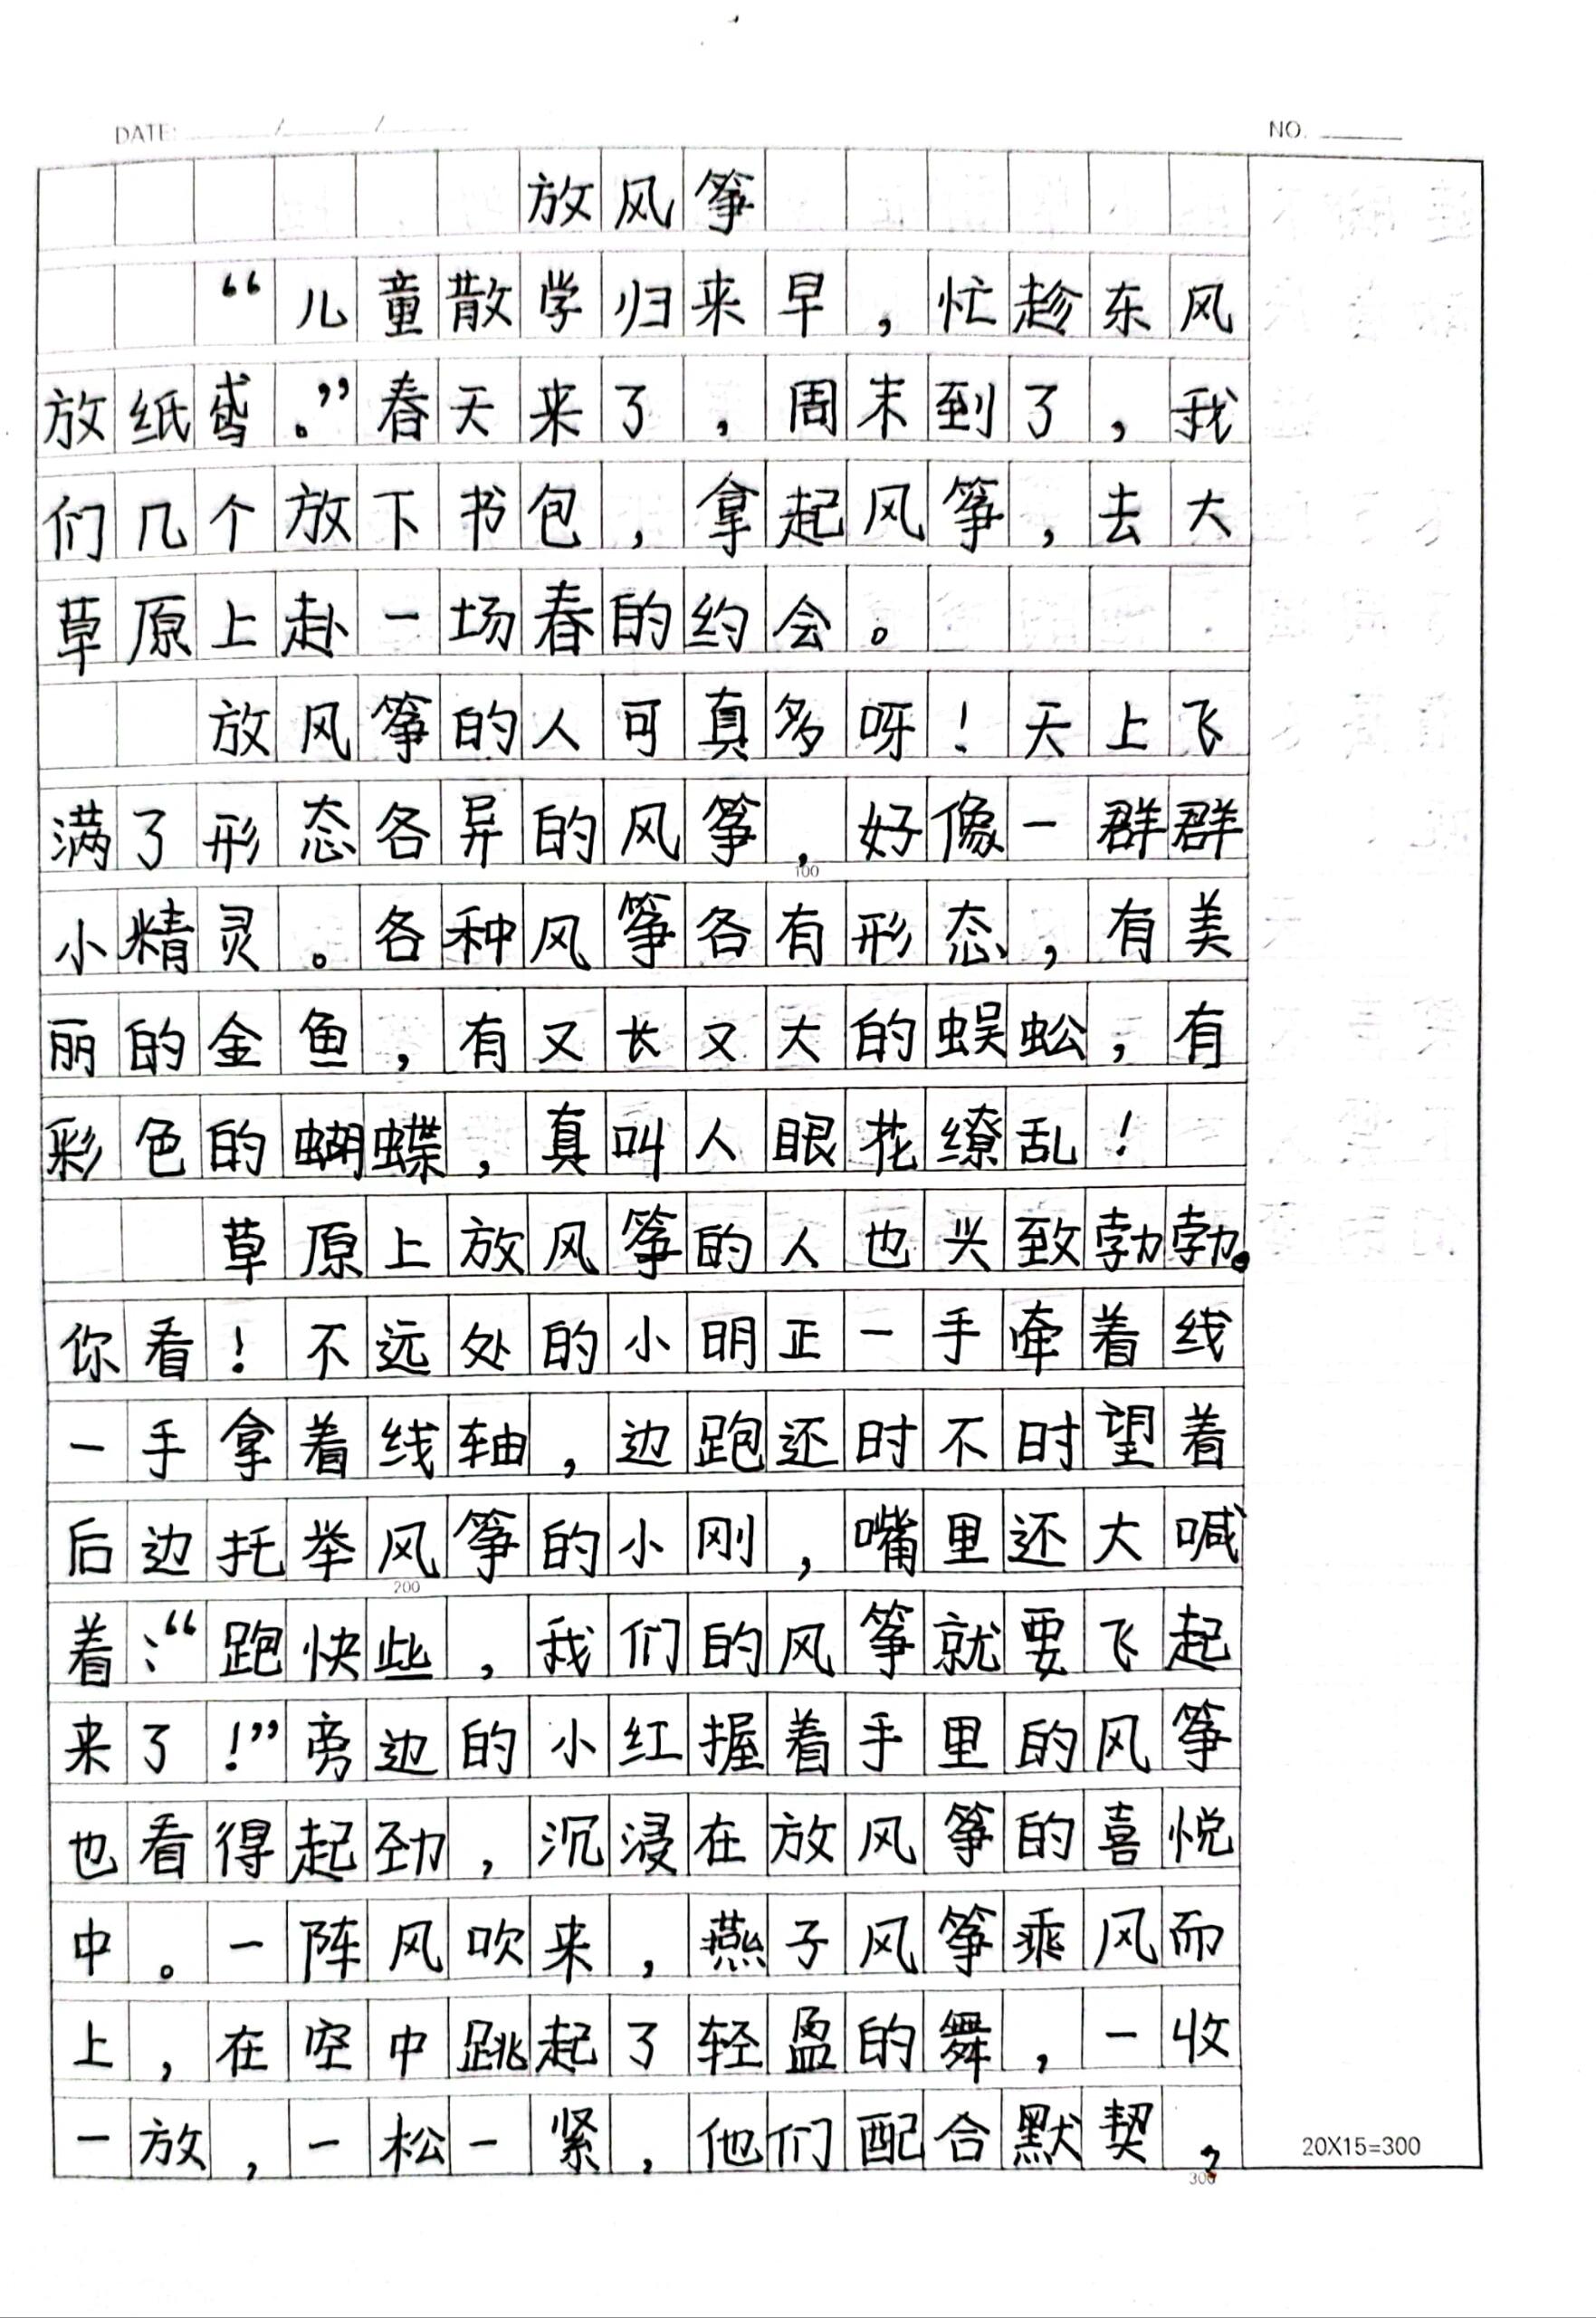 DATE: / / NO.
放风筝
“儿童散学归来早，忙趁东风
放纸鸢。”春天来了，周末到了，我
们几个放下书包，拿起风筝，去大
草原上赴一场春的约会。
放风筝的人可真多呀！天上飞
满了形态各异的风筝，好像一群群
100
小精灵。各种风筝各有形态，有美
丽的金鱼，有又长又大的蜈蚣，有
彩色的蝴蝶，真叫人眼花缭乱！
草原上放风筝的人也兴致勃勃。
你看！不远处的小明正一手牵着线
一手拿着线轴，边跑还时不时望着
后边托举风筝的小刚，嘴里还大喊
200
着：“跑快些，我们的风筝就要飞起
来了！”旁边的小红握着手里的风筝
也看得起劲，沉浸在放风筝的喜悦
中。一阵风吹来，燕子风筝乘风而
上，在空中跳起了轻盈的舞，一收
一放，一松一紧，他们配合默契，
20X15=300
300